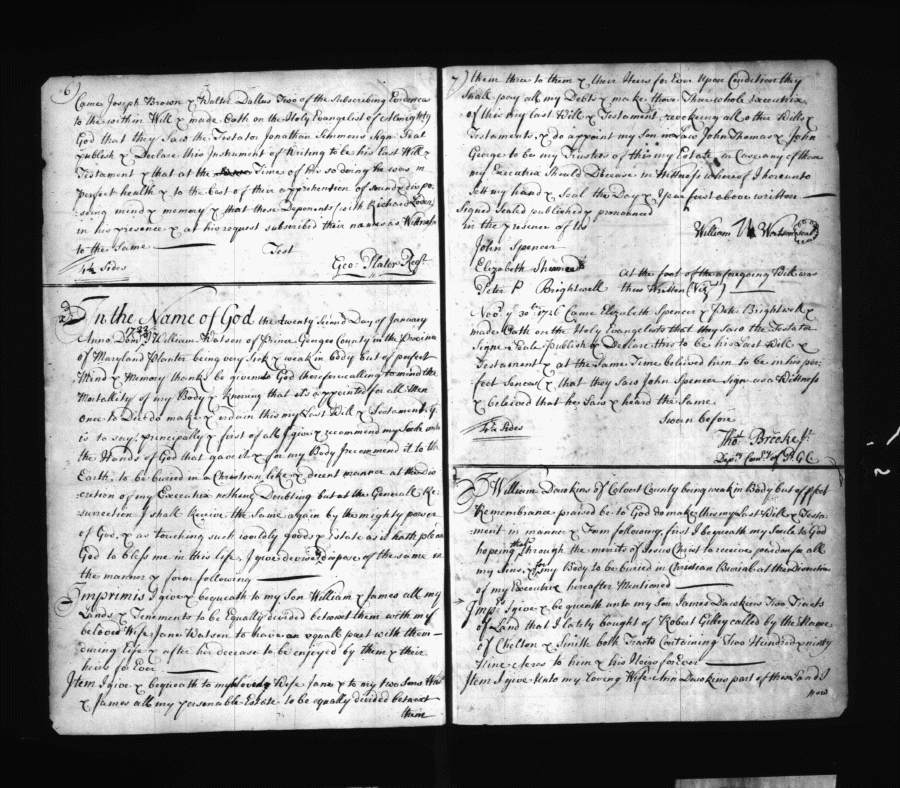 6)
Came Joseph Brown & Walter Dallas Two of the Subscribing Evidences
to the within Will & made Oath on the Holy Evangelist of Almighty
God that they Saw the Testator Jonathan Simmons Sign Seal
publish & Declare this Instrument of Writing to be his last Will &
Testament & that at the Time of his so doing he was in
perfect health & to the best of their apprehension of sound & dispo
sing mind & memory & that these Deponents (with Richard
in his presence & at his request subscribed their names as Witness
to the Same
Test
4½ Sides
Geo: Plater Regr
In the Name of God the twenty Second Day of January
Anno Domi I William Watson of Prince Georges County in the Province
of Maryland Planter being very Sick & weak in body but of perfect
Mind & Memory thanks be given to God therefore calling to mind the
Mortallity of my Body & Knowing that it is appointed for all Men
once to Die do make & ordain this my Last Will & Testament yt
is to say, principally & first of all I give & recommend my Soul into
the Hands of God that gave it & for my Body I recommend it to the
Earth to be buried in a Christian like & decent manner at the Dis
cretion of my Executrix nothing Doubting but at the Generall Re
surrection I shall Receive the Same again by the mighty power
of God, & as touching such worldly goods & Estate as it hath pleas
God to bless me in this life, I give devise & dispose of the same in
the manner & form following
Imprimis I give & bequeath to my Son William & James all my
Lands & Tenements to be Equally divided betwixt them with my
beloved Wife Jane Watson to have an equall part with them
during life & after her decease to be enjoyed by them & their
heirs for Ever
Item I give & bequeath to my loveing Wife Jane & to my two Sons Wm
& James all my personable Estate to be equally divided betwixt
them
7)
them three to them & their Heirs for Ever Upon Condition they
Shall pay all my Debts & make them Three whole Executrix
of this my last Will & Testament revokeing all other Wills &
Testaments, & do appoint my Son in Law John Thomas & John
George to be my Trustees of this my Estate in Case any of them
my Executrix Should Decease in Witness whereof I hereunto
Sett my hand & Seal the Day & Year first above written
Signed Sealed published & pronounced
in the presence of us
William W Watson seal
John Spencer
Elizabeth
Peter P Brightwell
At the foot of the aforegoing Will was
thus Written (Vizt)
Novr ye 30th Came Elizabeth Spencer & Pete Brightwell &
made Oath on the Holy Evangelists that they Saw the Testator
Signe Seale Publish & Declare this to be his Last Will &
Testament & at the Same Time believed him to be in his per
fect Sences & that they Saw John Spencer Sign as a Witness
& believed that he Saw & heard the Same
Sworn before
4½ Sides
Thos Brooke Jr
Depty Comry of P G C
I William Dawkins of Calvert County being weak in Body but of pfect
Remembrance praised be to God do make this my Last Will & Testa
ment in manner & Form following, first I bequeath my Soule to God
hoping that Through the merits of Jesus Christ to receive pardon for all
my Sins, & for my Body to be buried in Christian Burial at the Discretion
of my Executrix hereafter Mentioned
Imps I give & bequeath unto my Son James Dawkins Two Tracts
of Land that I lately bought of Robert Gilley called by the Name
of Chelton & Smith both Tracts Containing Two Hundred ninty
Nine Acres to him & his Heirs for Ever
Item I give Unto my Loving Wife Ann Dawkins part of these Lands
now